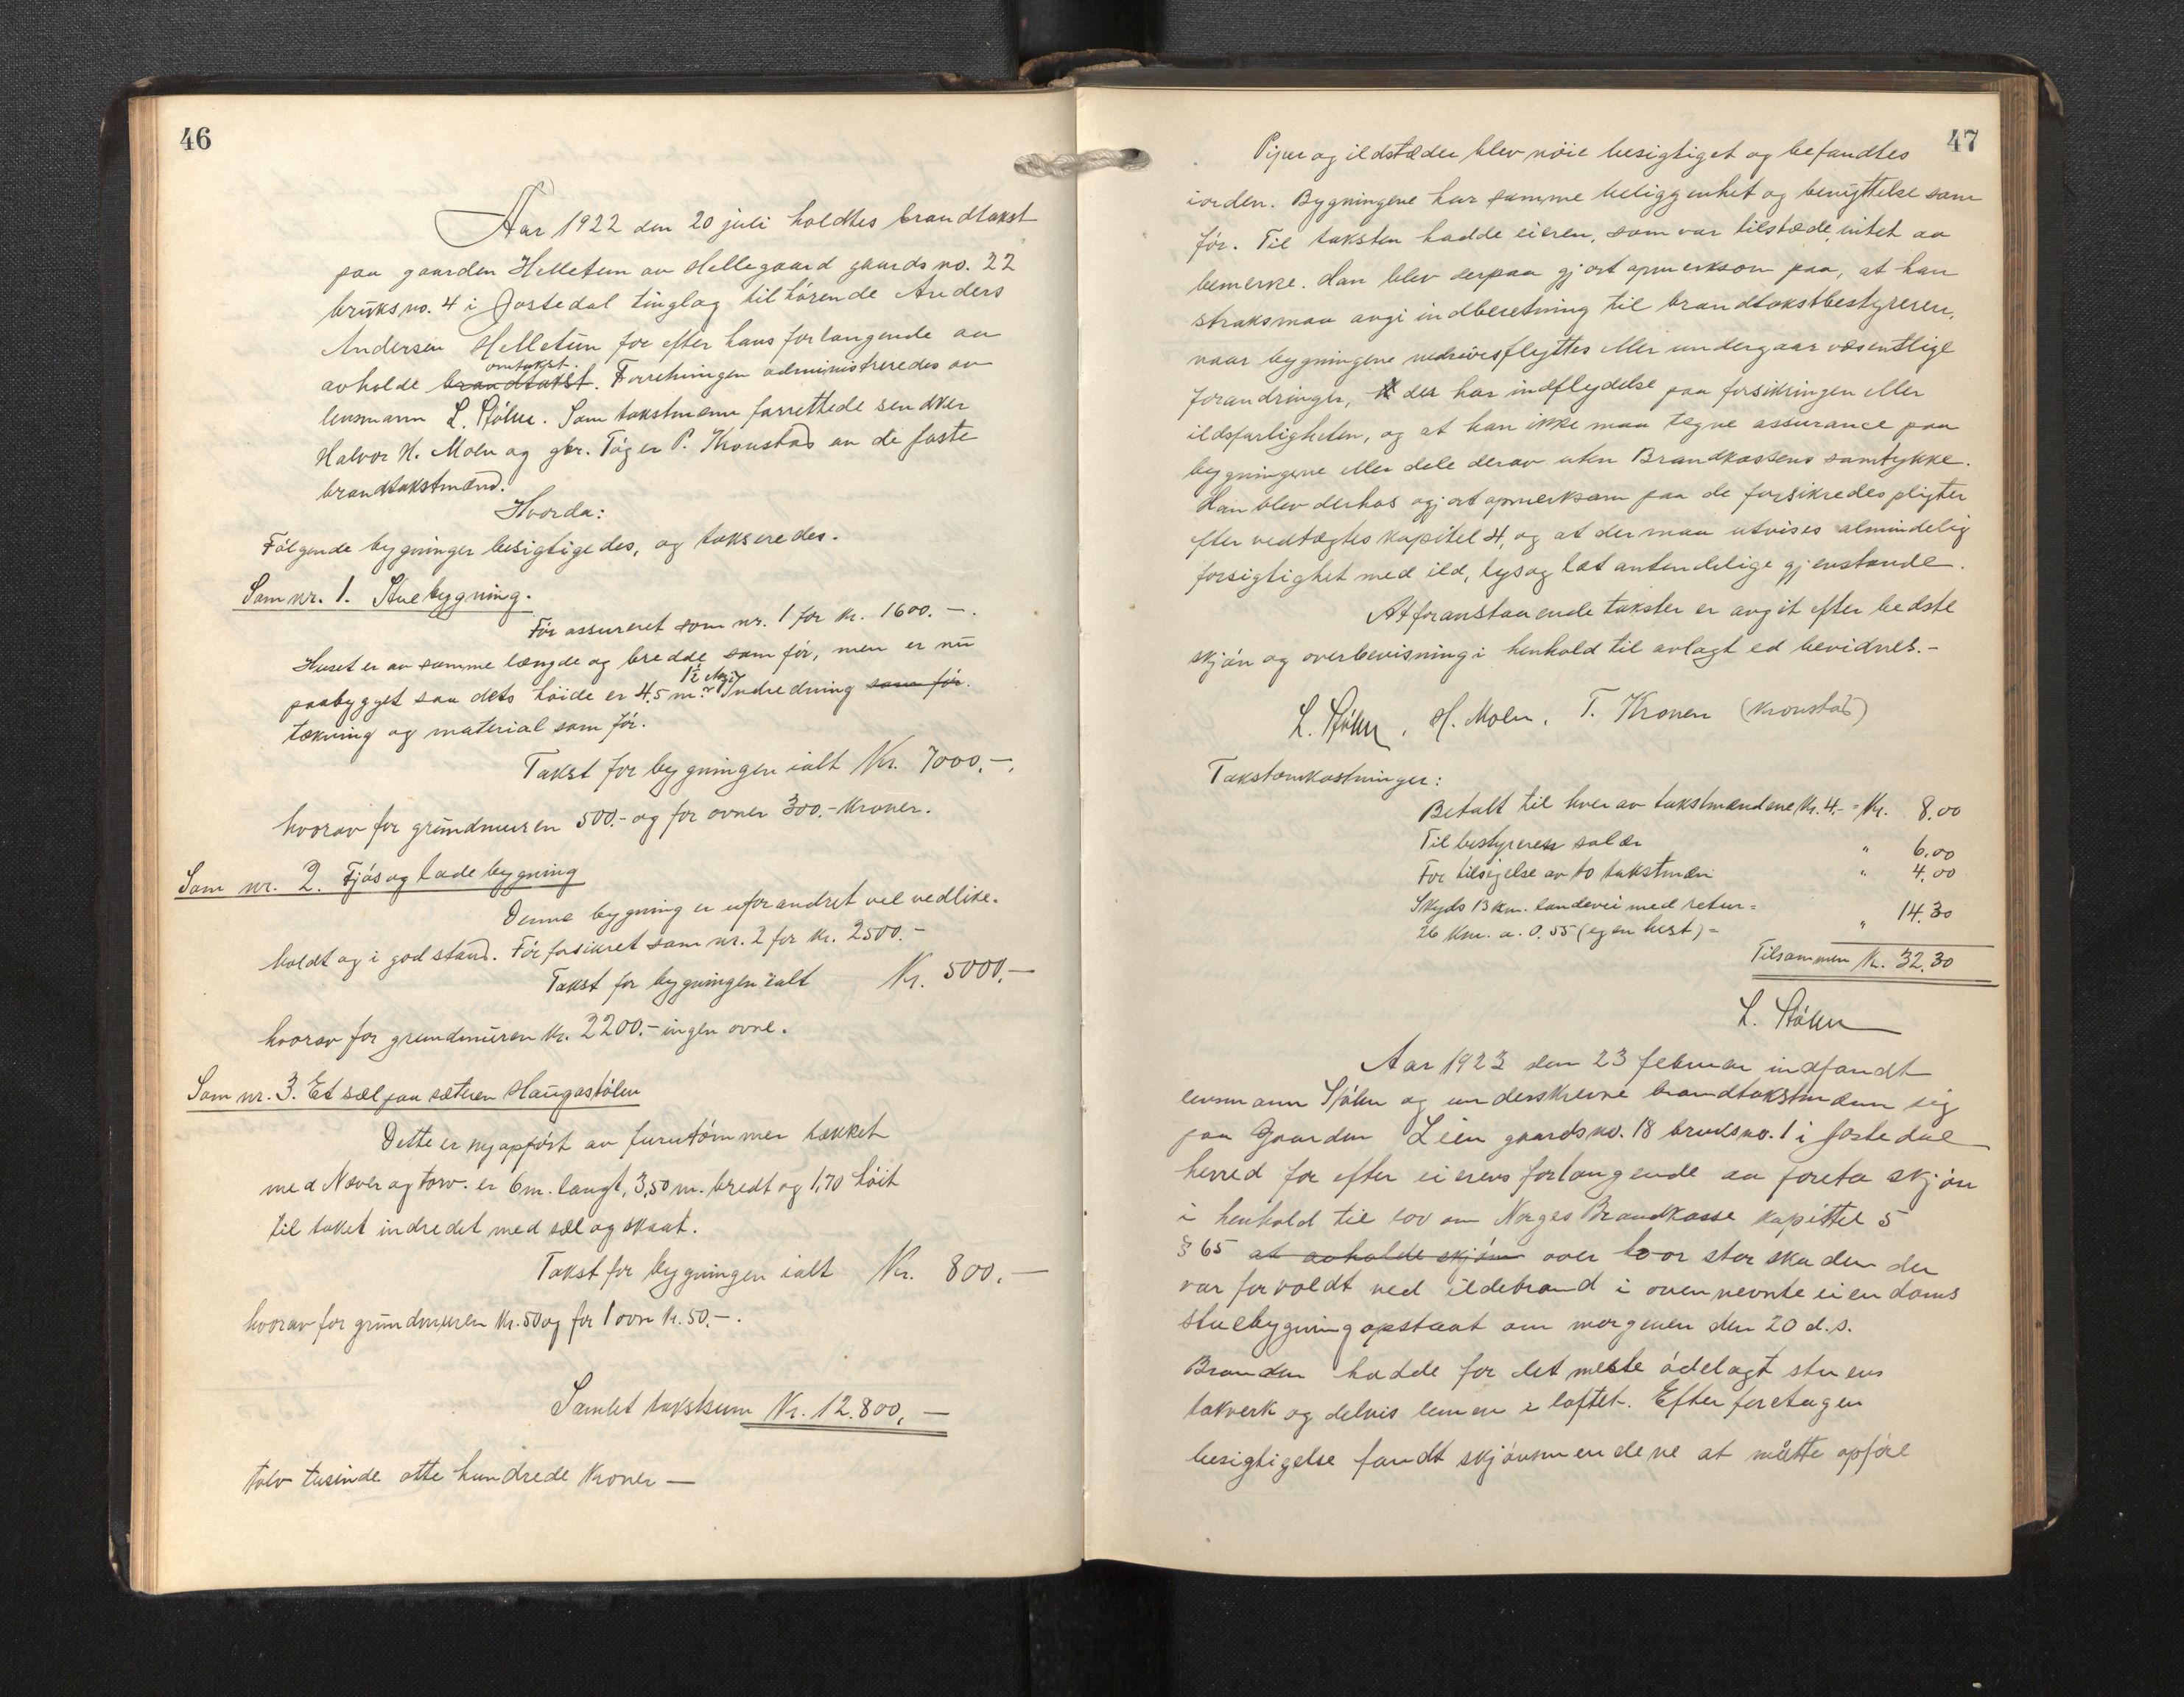 46
Aar 1922 den 20 juli holdtes brandtakst
paa gaarden Helletun av Hellegaard gaards no. 22
bruks no. 4 i Jostedal tinglag tilhørende Anders
Andersen Helletun for efter hans forlangende aa
omtakst.
avholde brandtakst. Forretningen administreredes av
lensmann L. Sjølen. Som takstmenn forrettede
Halvor H. Molu og gbr. Tøger P. Kronstad av de faste
brandtakstmænd.
Hvorda:
Følgende bygninger besigtigedes, og takseredes.
Som nr. 1. Stuebygning.
Før assureret som nr. 1 for kr. 1600.-.
Huset er av samme længde og bredde som før, men er nu
paabygget saa dets høide er 4,5 m. Indredning som før.
tækning og material som før.
Takst for bygningen ialt Kr. 7000.-.
hvorav for grundmuren 500.- og for ovner 300.- Kroner.
Som nr. 2. Fjøs og ladebygning
Denne bygning er uforandret vel vedlike-
holdt og i god stand. Før forsikret som nr. 2 for kr. 2500.-
Takst for bygningen ialt Kr. 5000.-
hvorav for grundmuren kr. 2200.- ingen ovne.
Som nr. 3. Et sæl paa sæteren Haugastølen
Dette er nyopført av furutømmer tækket
med Næver og torv. er 6 m. langt, 3,50 m. bredt og 1,70 høit
til taket indredet med sæl og skaat.
Takst for bygningen ialt Kr. 800.-
hvorav for grundmuren kr. 50 og for 1 ovn kr. 50.-.
Samlet takstsum Kr. 12.800,-
tolv tusinde otte hundrede Kroner -
47
Piper og ildstæder blev nøie besigtiget og befandtes
iorden. Bygningene har samme beliggenhet og benyttelse som
før. Til taksten hadde eieren, som var tilstæde, intet aa
bemerke. Han blev derpaa gjort opmerksom paa, at han
straks maa avgi indberetning til brandtakstbestyreren,
naar bygningene nedrives flyttes eller undergaar væsentlige
forandringer, der har indflydelse paa forsikringen eller
ildsfarligheten, og at han ikke maa tegne assurance paa
bygningene eller dele derav uten Brandkassens samtykke.
Han blev derhos gjort opmerksom paa de forsikredes pligter
efter vedtægtes kapitel 4, og at der maa utvises almindelig
forsigtighet med ild, lys og let antendelige gjenstande.
At foranstaaende takster er avgit efter bedste
skjøn og overbevisning i henhold til avlagt ed bevidnes.-
L. Sjølen, H. Molu, T. Kronen (Kronstad)
Takstomkostninger:
Betalt til hver av takstmændene Kr. 4.- = Kr. 8.00
Til bestyreren salær " 6.00
For tilsigelse av to takstmæn " 4.00
Skyds 13 km. landevei med retur =
26 km. a. 0.55 (egen hest) = " 14.30
Tilsammen Kr. 32.30
L. Sjølen
Aar 1923 den 23 februar indfandt
lensmann Sjølen og underskrevne brandtakstmænn sig
paa Gaarden Leien gaardsno. 18 bruksno. 1 i Jostedal
herred for efter eierens forlangende aa foreta skjøn
i henhold til lov om Norges Brandkasse kapittel 5
§ 65 at avholde skjøn over hvor stor skaden der
var forvoldt ved ildebrand i ovennevnte eiendoms
stuebygning opstaat om morgenen den 20 d.s.
Branden hadde for det meste ødelagt stuens
takverk og delvis lemen i loftet. Efter foretagen
besigtigelse fandt skjønsmendene at måtte opføre